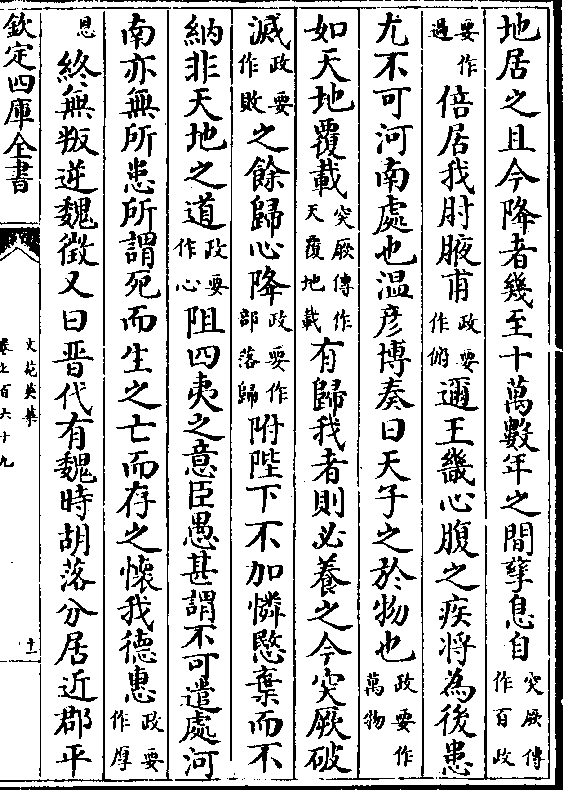 地居之且今降者幾至十萬數年之間孳息自突厥傳作百政
要作過倍居我肘腋甫政要作俯邇王畿心腹之疾將為後患
尤不可河南處也温彦博奏曰天子之於物也政要作萬物
如天地覆載突厥傳作天覆地載有歸我者則必養之今突厥破
滅政要作敗之餘歸心降政要作部落歸附陛下不加憐愍棄而不
納非天地之道政要作心阻四夷之意臣愚甚謂不可遣處河
南亦無所患所謂死而生之亡而存之懷我德惠政要作厚
恩終無叛逆魏徵又曰晋代有魏時胡落分居近郡平
欽定四庫全書
文苑英華
卷七百六十九
十一